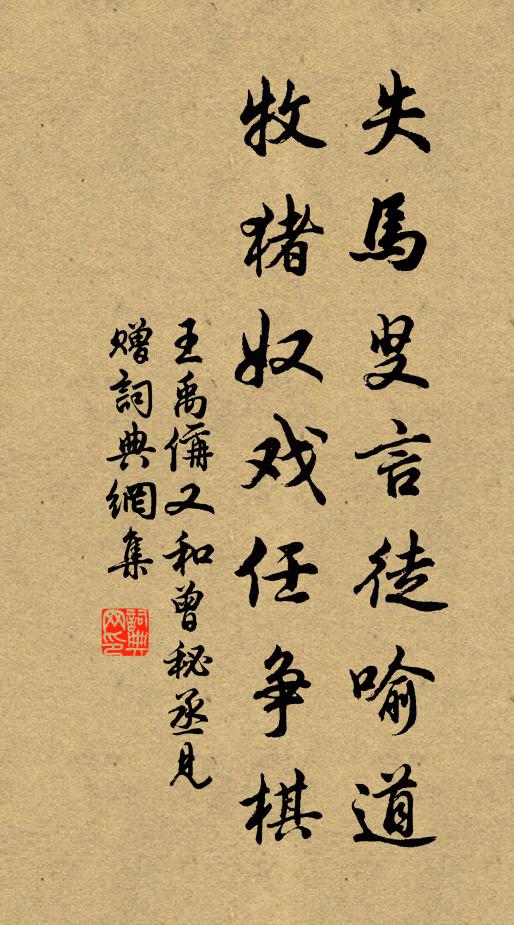 失馬叟言徒喻道
牧猪奴戏任争棋
王禹偁又和曾秘丞見
贈詞典網集
詞典
网印